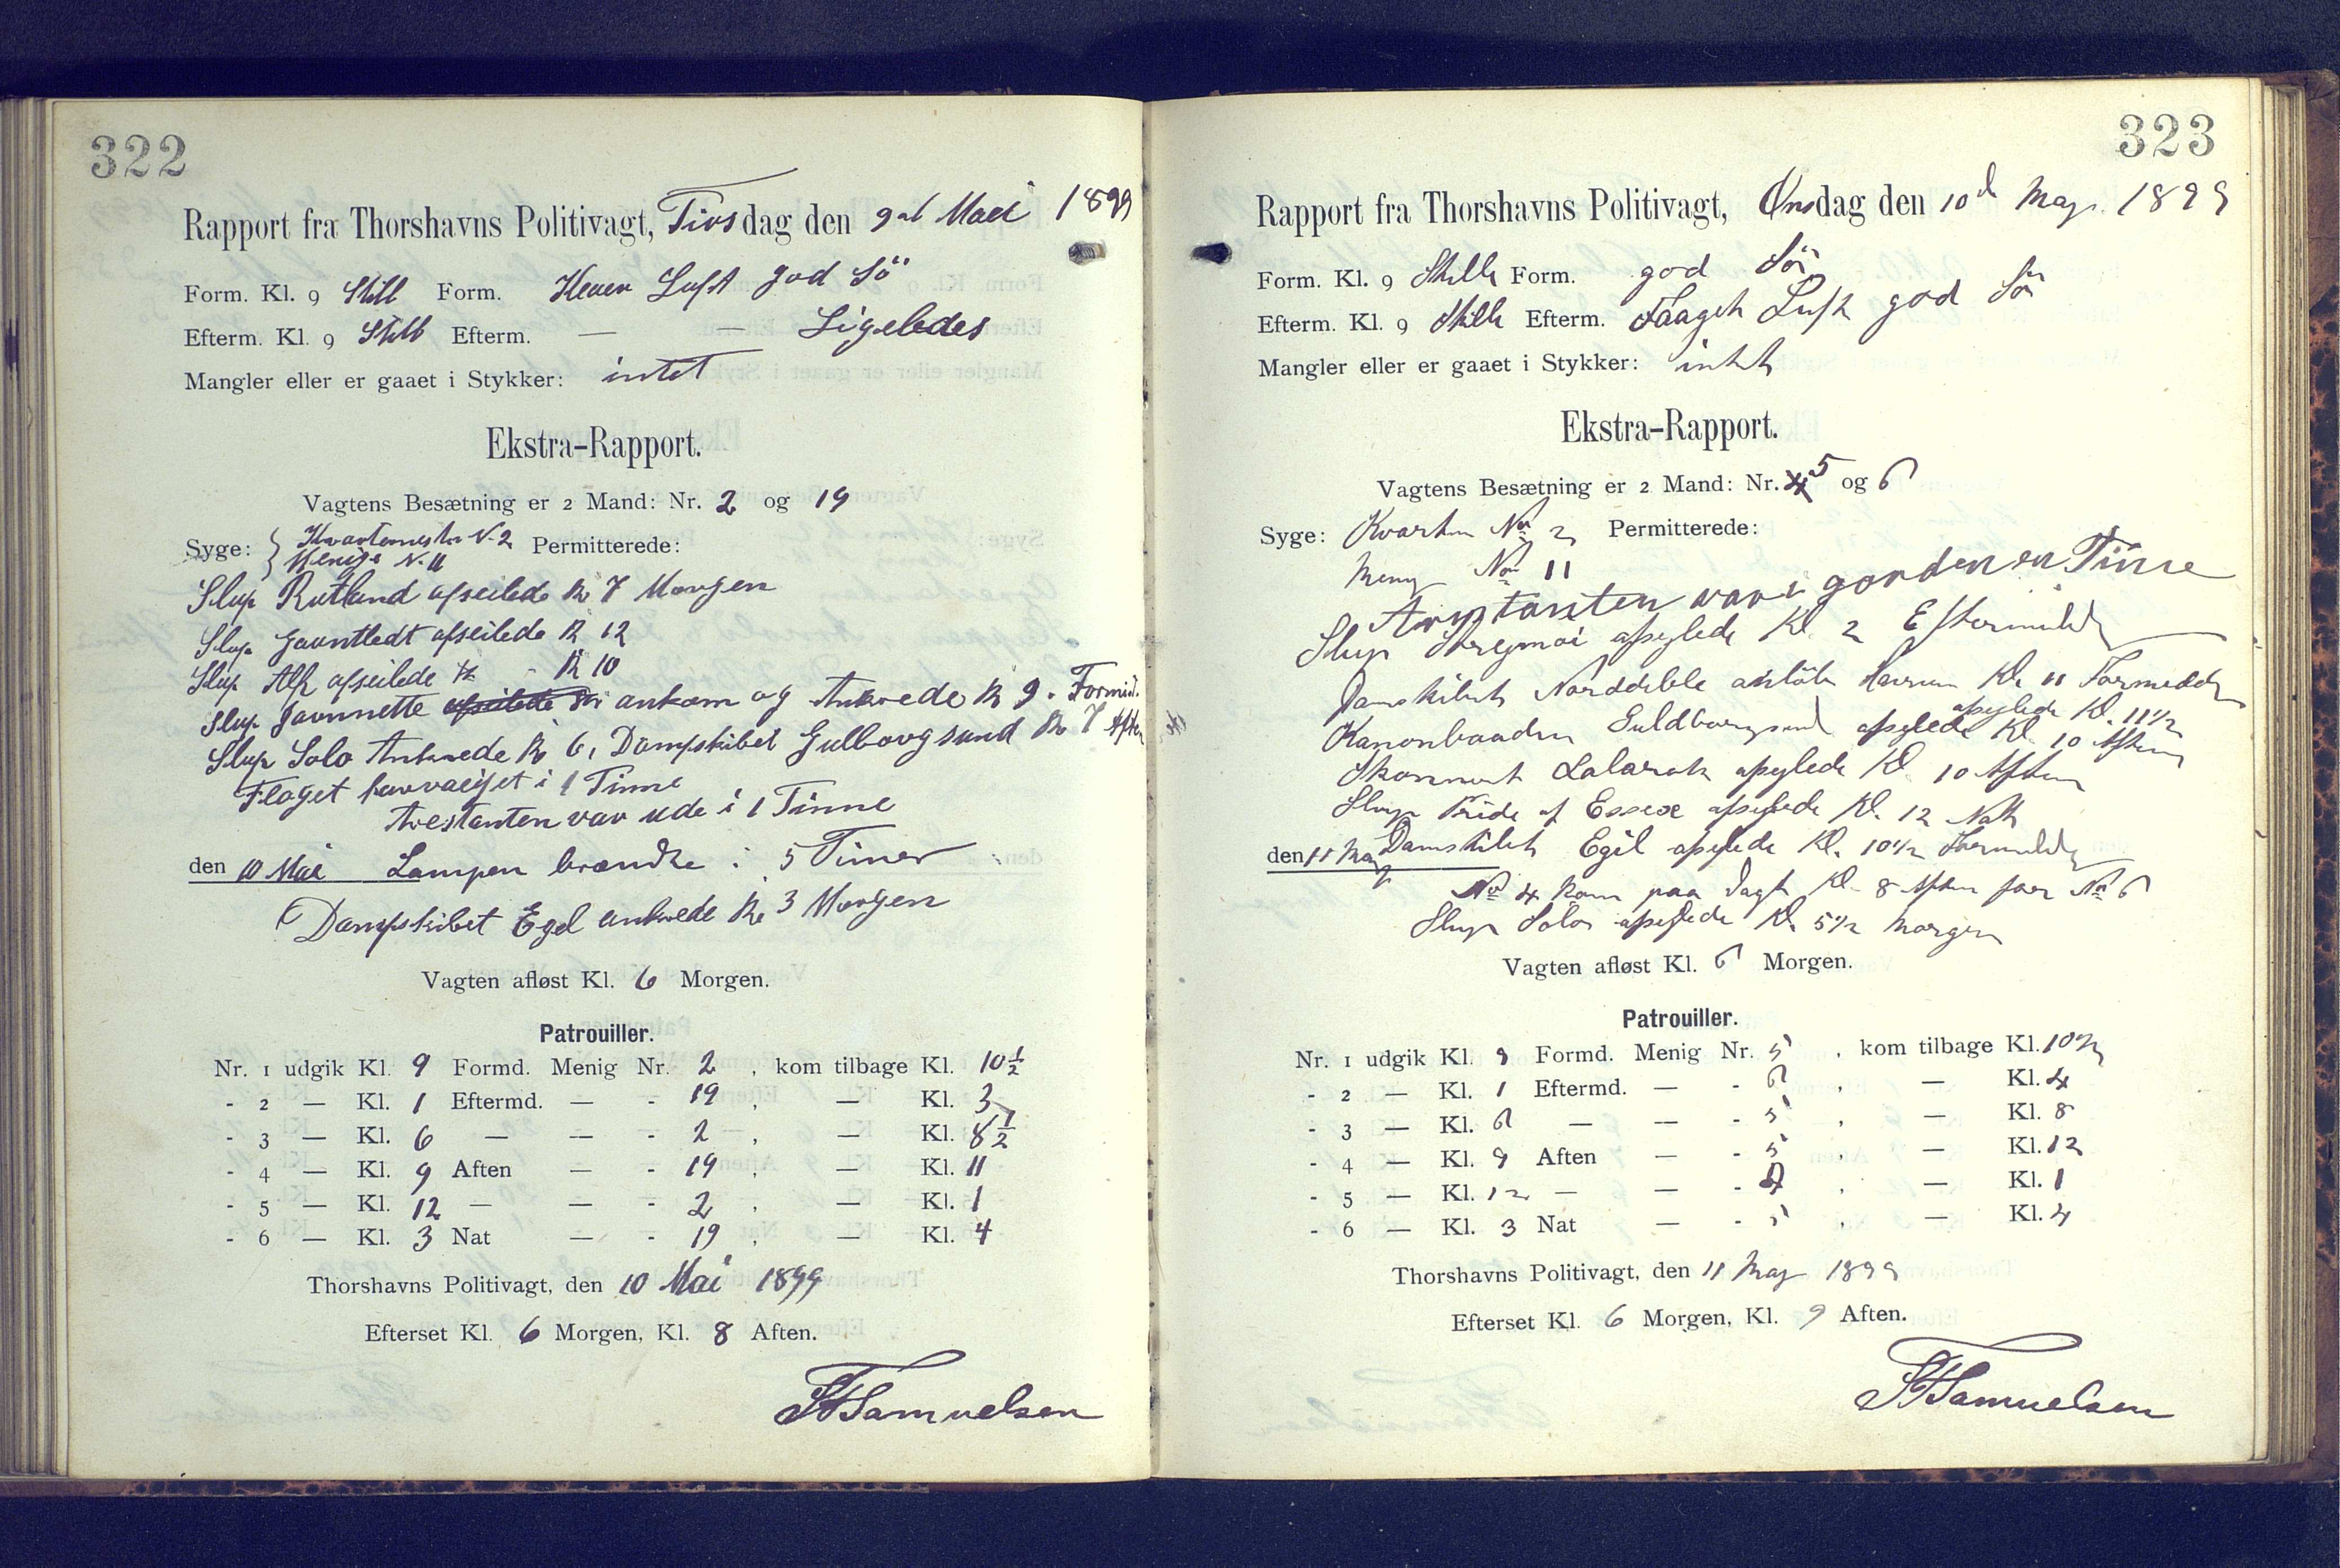 322
Rapport fra Thorshavns Politivagt, Tirsdag den 9de Mai 1899
Form. Kl. 9 Still Form. Klaar Luft god Sö
Efterm. Kl. 9 Still Efterm. — — Ligeledes
Mangler eller er gaaet i Stykker: intet
Ekstra-Rapport.
Vagtens Besætning er 2 Mand: Nr. 2 og 19
Syge: Kvartermester N. 2 Permitterede:
Menige N. 11
Slup Rutland afseilede Kl 7 Morgen
Slup Gauntledt afseilede Kl 12
Slup Alfr afseilede Kl 10
Slup Jaunnette afseilede ankom og Ankrede Kl 9. Formid.
Slup Solo Ankrede Kl 6, Dampskibet Gulborgsund Kl 7 Aften
Flaget har vaiget i 1 Time
Arestanten var ude i 1 Time
den 10 Mai Lampen brændte i 5 Timer
Dampskibet Egel ankrede Kl 3 Morgen
Vagten afløst Kl. 6 Morgen.
Patrouiller.
Nr. 1 udgik Kl. 9 Formd. Menig Nr. 2, kom tilbage Kl. 10½
- 2 — Kl. 1 Eftermd. — - 19, — Kl. 3
- 3 — Kl. 6 — — - 2, — Kl. 8½
- 4 — Kl. 9 Aften — - 19, — Kl. 11
- 5 — Kl. 12 — — - 2, — Kl. 1
- 6 — Kl. 3 Nat — - 19, — Kl. 4
Thorshavns Politivagt, den 10 Mai 1899
Efterset Kl. 6 Morgen, Kl. 8 Aften.
Samuelsen
323
Rapport fra Thorshavns Politivagt, Onsdag den 10d Maj 1899
Form. Kl. 9 Stille Form. god Sö
Efterm. Kl. 9 Stille Efterm. Taaget Luft god Sö
Mangler eller er gaaet i Stykker: intet
Ekstra-Rapport.
Vagtens Besætning er 2 Mand: Nr. 5 og 6
Syge: Kvartm No 2 Permitterede:
Meng No 11
Arestanten var i gorden en Time
Slup Stregmoi afseglede Kl. 2 Eftermidd
Damskibet Nordeble anlöb Havnen Kl. 11 Formidd
afseglede Kl. 11½
Kanonbaaden Guldborgsund afseglede Kl 10 Aften
Skonnert Lalarok afseglede Kl. 10 Aften
Slup Pride of Essex afseglede Kl. 12 Nat
den 11 Maj Damskibet Egil afseglede Kl. 10½ Formidd
No 4 kom paa Vagt Kl. 8 Aften for No 6
Slup Solo afseglede Kl. 5½ Morgen
Vagten afløst Kl. 6 Morgen.
Patrouiller.
Nr. 1 udgik Kl. 9 Formd. Menig Nr. 5, kom tilbage Kl. 10½
- 2 — Kl. 1 Eftermd. — - 6, — Kl. 4
- 3 — Kl. 6 — — - 5, — Kl. 8
- 4 — Kl. 9 Aften — - 5, — Kl. 12
- 5 — Kl. 12 — — - 4, — Kl. 1
- 6 — Kl. 3 Nat — - 5, — Kl. 4
Thorshavns Politivagt, den 11 Maj 1899
Efterset Kl. 6 Morgen, Kl. 9 Aften.
Samuelsen